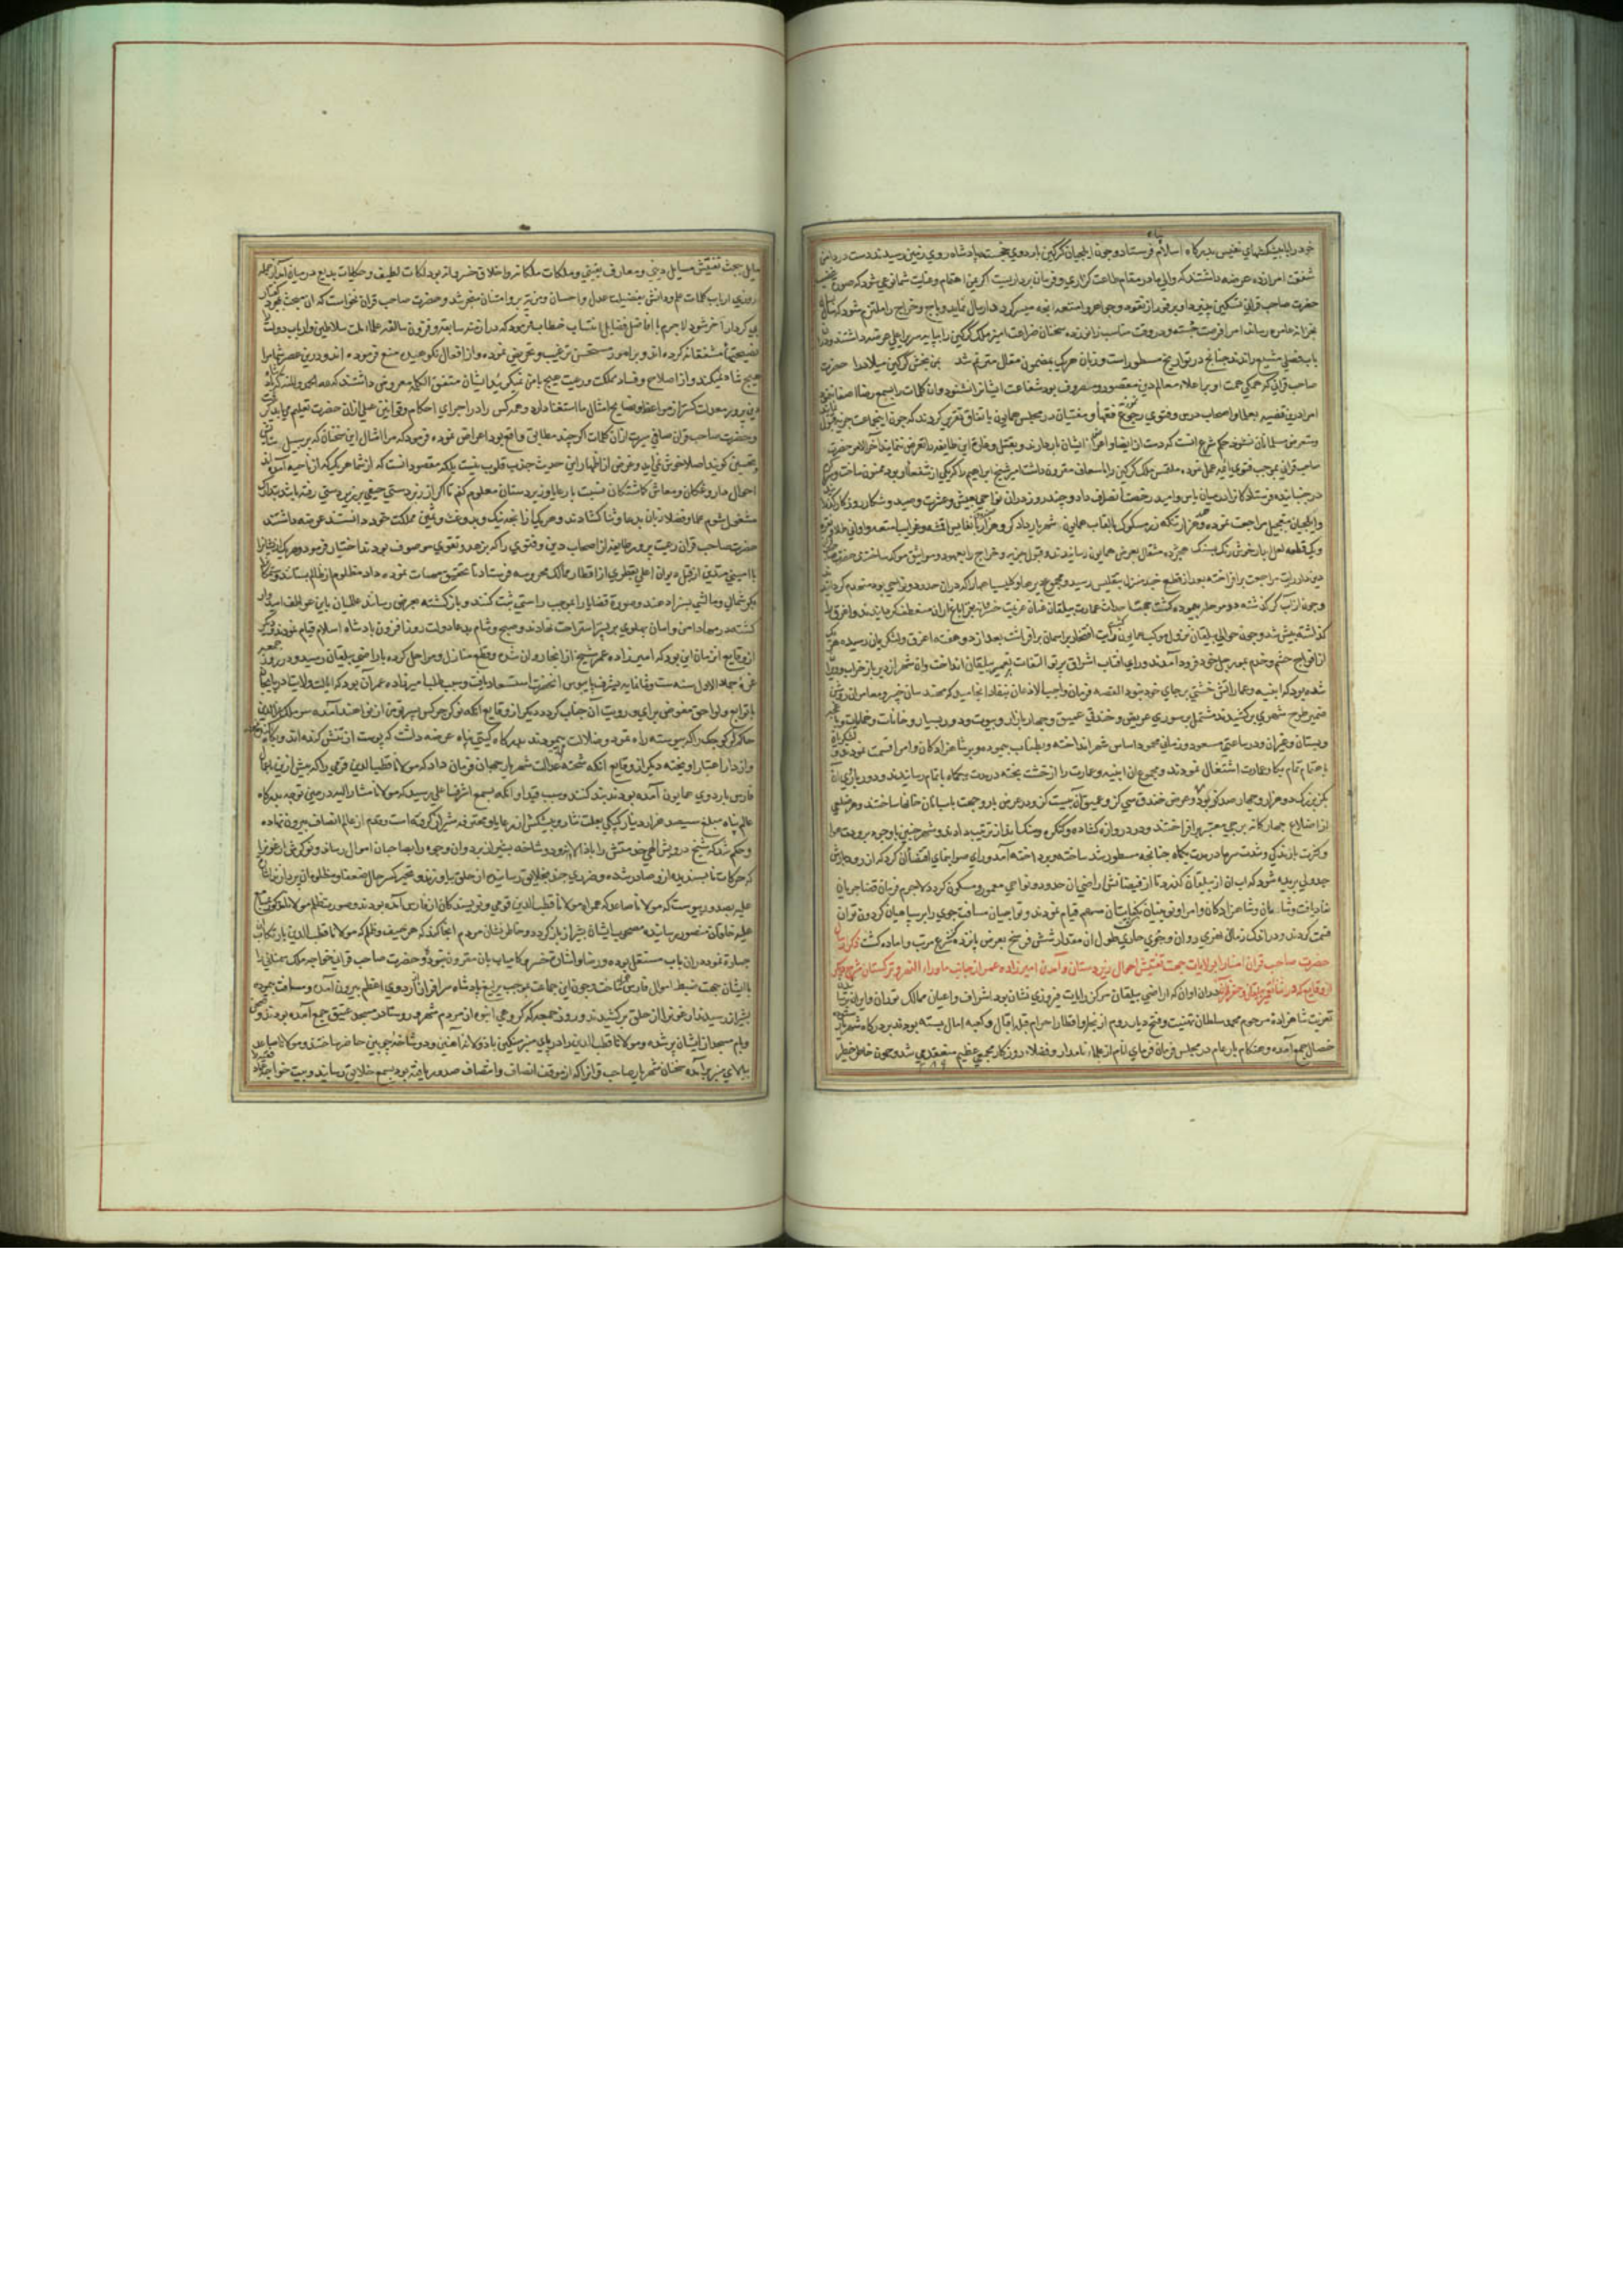 خود را با پیشکشهای نفیس بدرگاه اسلام پناه فرستاد و چون ایلچیان گرگین باردوی خجسته پادشاه روی زمین رسیدند دست در دامن
شفقت امرا زده عرضه داشتند که والی ما در مقام طاعت گزاری و فرمان برداریست اکر عین اهتمام و عنایت شما نوعی شود که
حضرت صاحب قرانی تسکین پذیرد او برفور از نقود و جواهر و امتعه انچه میسر کردد ارسال نماید و باج و خراج را ملتزم شود که
بخزانه عامره رساند امرا فرصت جسته و در وقت مناسب زانو زده سخنان ضراعت امیز ملک گرگین را بپایه سریر اعلی عرضه داشتند
باب فصلی مشبع راندند چنانچه در تواریخ مسطور است و زبان هریک بمضمون مقال مترنم شد بمن بخش گرگین میلاد را حضرت
صاحب قرانی که همکی همت او بر اعلاء معالم دین مقصور و مصروف بود شفاعت ایشانرا نشنود و ان کلمات را بسمع رضا اصغا نفرمود
امرا درین قضیه بعلما و اصحاب درس و فتوی رجوع نمودند فقها و مفتیان در مجلس همایون باتفاق تقریر کردند که چون اینجماعت جزیه قبول
و متعرض مسلمانان نشوند حکم شرع انست که دست از ایذا و اضرار ایشان باز دارند و بقتل و غارت این طایفه را تعرض ننمایند آخر الامر حضرت
صاحب قرانی بموجب فتوی یا فیه عمل نموده ملتمس ملک گرگین را باسعاف مقرون داشت امیر شیخ ابراهیم را که یکی از شفعا او بود ممنون ساخت و
در جنبانید و فرستادکانرا در میان یاس و امید رخصت انصراف داد و چند روز دران نواحی بعیش و عشرت و صید و شکار روزکار
و ایلچیان بتعجیل مراجعت نموده هزار تنکه زر مسکوک بالقاب همایون شهریار و نفایس اقمشه و غرایب امتعه و اوانی طلا و نقره
و یک قطعه لعل آبدار خوش رنک بسنک هجده مثقال بعرض همایون رسانیدند و قبول جزیه و خراج را بعهود و مواثیق موکد ساختند و حضرت
دین دار رایت مراجعت برافراخته بعد از قطع چند منزل بتفلیس رسید و مجموع دیرها و کلیساها را که دران حدود و نواحی بود منهدم کردانید
و چون از آب کر کذشته دو مرحله پیموده کشت جهت عمارت بیلقان عنان عزیمت بجانب اران منعطف کردانیدند و
کذاشته پیش شد و چون حوالی بیلقان نزول موکب همایون رایت افتخار بر اسمان برافراشت بعد از دو هفته اغرق و لشکریان رسیده
از افواج حشم و خدم بمورچل خود فرود آمدند و رای آفتاب اشراق پرتو التفات بتعمیر بیلقان انداخت و ان شهر از دیر باز خراب بود
شده بود که از ابنیه و عماراتش خشتی بر جای خود نبود القصه فرمان واجب الاذعان بنفاذ انجامید و که مهندسان خبیر و معماران روشن
ضمیر طرح شهری برکشیدند مشتمل بر سوری عریض و خندقی عمیق و چهار بازار و بیوت و دور بسیار و خانات و حمامات
و بستان و غیر ان و در ساعتی مسعود و زمانی محمود اساس شهر انداخته و باطناب پیموده و بر شاهزادکان و امرا قسمت نمودند
باهتمام تمام بکار عمارت اشتغال نمودند و مجموع ان ابنیه و عمارت را از خشت پخته در مدت یکماه باتمام رسانیدند و دور باروی آن
بکز بزرک دو هزار و چهارصد کز بود و عرض خندق سی کز و عمیق آن بیست کز و در عرض بارو جهت پاسبانان خانها ساختند و هر ضلعی
از اضلاع چهارکانه برجی معتبر برافراختند و دو دروازه کشاده و کنکره و سنک انداز ترتیب دادند و شهر چنین باوجود برودت هوا
و کثرت بارندکی و شدت سرما در مدت یکماه چنانچه مسطور شد ساخته و پرداخته آمد و رای صوابنمای اقتضا آن کرد که از رود ارس
جدولی بریده شود که اب ان از بیلقان کذرد تا از فیضانش اراضی ان حدود و نواحی معمور و مسکون کردد لاجرم فرمان قضا جریان
نفاذ یافت و شاهزادکان و امرا و نویینان بکفایت ان مهم قیام نمودند و تواجیان مسافت جوی را بر سپاهیان کردون توان
قسمت کردند و در اندک زمانی نهری روان و جوی جاری طول ان مقدار شش فرسخ بعرض پانزده کز شرع مرتب و اماده کشت ذکر
حضرت صاحب قران امنا را بولایات جهت تفتیش احوال زیردستان و آمدن امیرزاده عمر از جانب ماوراء النهر و ترکستان شرح دیکر
از وقایع که در اثناء تعمیر بیلقان دران اوان که اراضی بیلقان مرکز رایات فیروزی نشان بود اشراف و اعیان ممالک توران و ایران
تعزیت شاهزاده مرحوم محمد سلطان تهنیت و فتح دیار روم از بحار و اقطار احرام قبله اقبال و کعبه امال بسته بودند بر درکاه شهریار
خصال جمع آمده و هنکام بار عام در مجلس فرمان فرمای انام از علماء نامدار و فضلاء روزکار مجمعی عظیم منعقد می شد و چون خاطر خطیر
مایل بحث تفتیش مسایل دینی و معارف یقینی و ملکات ملکانه و اخلاق خسروانه بود نکات لطیف و حکایات بدیع در میان آمد از جمله
روزی ارباب کلمات علم و دانش بفضیلت عدل و احسان و مزیه بر و امتنان منجر شد و حضرت صاحب قران نخواست که ان مبحث
بی کردار آخر شود لاجرم با افاضل فضایل انتساب خطاب فرمود که در ازمنه سابقه و قرون سالفه علماء ملت سلاطین و ارباب دولت
نصیحتهاء مشفقانه کرده اند و بر امور مستحسن ترغیب و تحریض نموده و از افعال نکوهیده منع فرموده اند و درین عصر شما مرا
هیچ ارشاد نمیکنید و از اصلاح و فساد مملکت و رعیت هیچ با من نمیکویید ایشان متفق الکلمه معروض داشتند که
دین پرور معدلت کستر از مواعظ و نصایح امثال ما استغنا دارد و همه کس را در اجرای احکام و قوانین عملی ازان حضرت تعلیم می باید کرفت
و حضرت صاحب قران صافی سیرت ازان کلمات اکرچه مطابق واقع بود اعراض نموده فرمود که مرا امثال این سخنان که بر سبیل
تحسین کویند اصلا خوش نمی آید و غرض از اظهار این حدیث جذب قلوب نیست بلکه مقصود انست که از شما هر یک که از ناحیه آمده اند
احوال داروغکان و معاش کماشتکان نسبت با رعایا و زیردستان معلوم کنم تا اکر از زبردستی حیفی بر زیردستی رفته باشد بتدارک
مشغول شوم علما و فضلا زبان بدعا و ثنا کشادند و هر یک از انچه نیک و بد و غث و ثمین مملکت خود دانستند عرضه داشتند
حضرت صاحب قران رعیت پرور طایفه از اصحاب دین و فتوی را که بزهد و تقوی موصوف بودند اختیار فرمود و هر یک از ایشانرا
با امینی متدین از قبل دیوان اعلی بقطری از اقطار ممالک محروسه فرستاد تا تحقیق مهمات نموده داد مظلوم از ظالم بستانند و
بکوشمالی و مالشی بسزا دهند و صورت قضایا را بموجب راستی ثبت کنند و بازکشته بعرض رسانند عالمیان باین عواطف امیدوار
کشته در مهاد امن و امان پهلوی بر بستر استراحت نهادند و صبح و شام بدعا دولت روزافزون پادشاه اسلام قیام نمودند
از وقایع آن زمان این بود که امیرزاده عمر شیخ از انجا روان شده و قطع منازل و مراحل کرده باراضی بیلقان رسید و در روز
غره جمادی الاول سنه ست و ثمانمایه بشرف پای بوس آنحضرت استسعاد یافت و سبب طلب امیرزاده عمر آن بود که ایالت ولایات آذربایجان
با توابع و لواحق مفوض برای و رویت آن جناب کردد دیکر از وقایع آنکه نوکر جوکس از نهاوند آمده سر ملک عزالدین
حاکم لر کوچک را که پیوسته راه تمرد و ضلالت پیمودند بدرکاه کیتی پناه عرضه داشت که پوست از تنش کنده اند و بکاه
و از دار اعتبار اویخته دیکر از وقایع آنکه شحنه عدالت شهریار جهان فرمان داد که مولانا قطب الدین قرمی را که پیش ازین
فارس باردوی همایون آمده بودند بند کنند و سبب قید او آنکه بسمع اشرف اعلی رسید که مولانا مشار الیه در حین توجه بدرکاه
عالم پناه مبلغ سیصد هزار دینار کپکی بعلت نثار و پیشکش از رعایا و محترفه شیراز کرفته است و قدم از عالم انصاف بیرون نهاده
و حکم شد که شیخ درویش اللهی خدمتش را با زاولانه و دوشاخه بشیراز برد و ان وجوه را بصاحبان اموال رساند و نوکرش ارغونرا
که حرکات ناپسندیده ازو صادر شده و ضرری چند بخلایق رسانیده از حلق بیاویزند و بجبر کسر حال ضعفا و مظلومان پردازند
علیه بصدور پیوست که مولانا صاعد که همراه مولانا قطب الدین قومی و نویسندکان ان از فارس آمده بودند و صورت ظلم مولانا مذکور
علیه خاقان منصور رسانیده مصحوب ایشان بشیراز باز کردد و خاطرنشان مردم انجا کند که هر حیف و ظلم که مولانا قطب الدین بارتکاب
جسارت نموده دران باب مستقل بوده و رضا و اشارت خسرو کامیاب بان مقرون نبوده و حضرت صاحب قرانی خواجه ملک سمنانی را
با ایشان جهت ضبط اموال فارس شناخت و چون این جماعت بموجب یرلیغ پادشاه سرافراز از اردوی اعظم بیرون آمده و مسافت پیموده
بشیراز رسیدند ارغونرا از حلق برکشیدند و روز جمعه که کروهی انبوه از مردم شهر و روستا در مسجد عتیق جمع آمده بودند و
و بام مسجد از ایشان پر شده و مولانا قطب الدین را در پای منبر سنکین با زاولانه آهنین و دوشاخه چوبین حاضر ساختند و مولانا صاعد
ببالای منبر برآمده سخنان شهریار صاحب قرانرا که از موقف انصاف و انتصاف صدور یافته بود بسمع خلایق رسانید و بیت